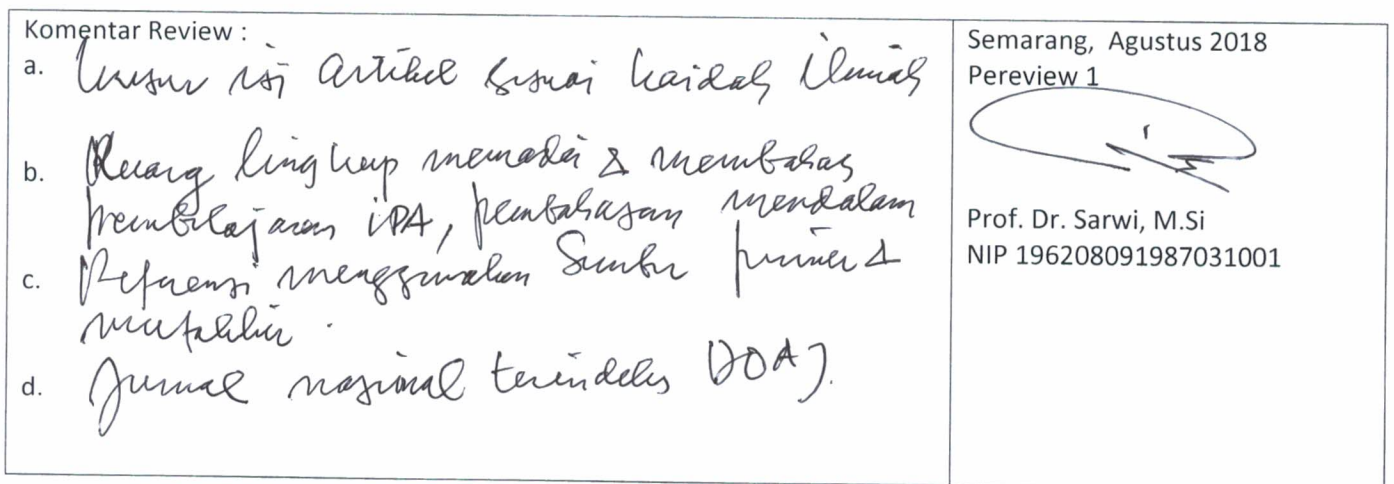 Komentar Review :
a. Unsur isi artikel sesuai kaidah ilmiah
b. Ruang lingkup memadai & membahas
pembelajaran IPA, pembahasan mendalam
c. Referensi menggunakan Sumber primer &
mutakhir.
d. Jurnal nasional terindeks DOAJ.
Semarang, Agustus 2018
Pereview 1
Prof. Dr. Sarwi, M.Si
NIP 196208091987031001